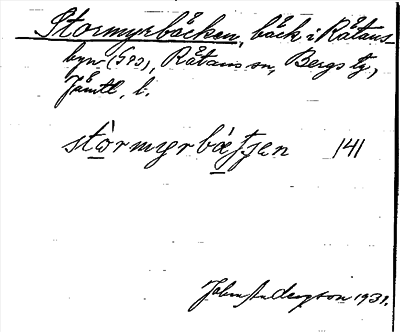 Stormyrbäcken, bäck i Rätans-
byn (G93), Rätans sn, Bergs tg,
Jämtl. l.
stòrmyrbäʃʃen 141
John Andersson 1931.